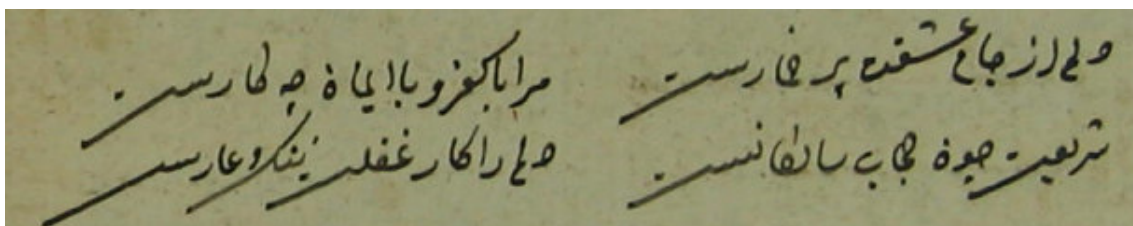 دلم از جام عشقت پر خمارست
مرا با کفر و با ایمان چه کارست
شریعت چون حجاب سالکانست
دلم را کار غفلت ننگ و عارست